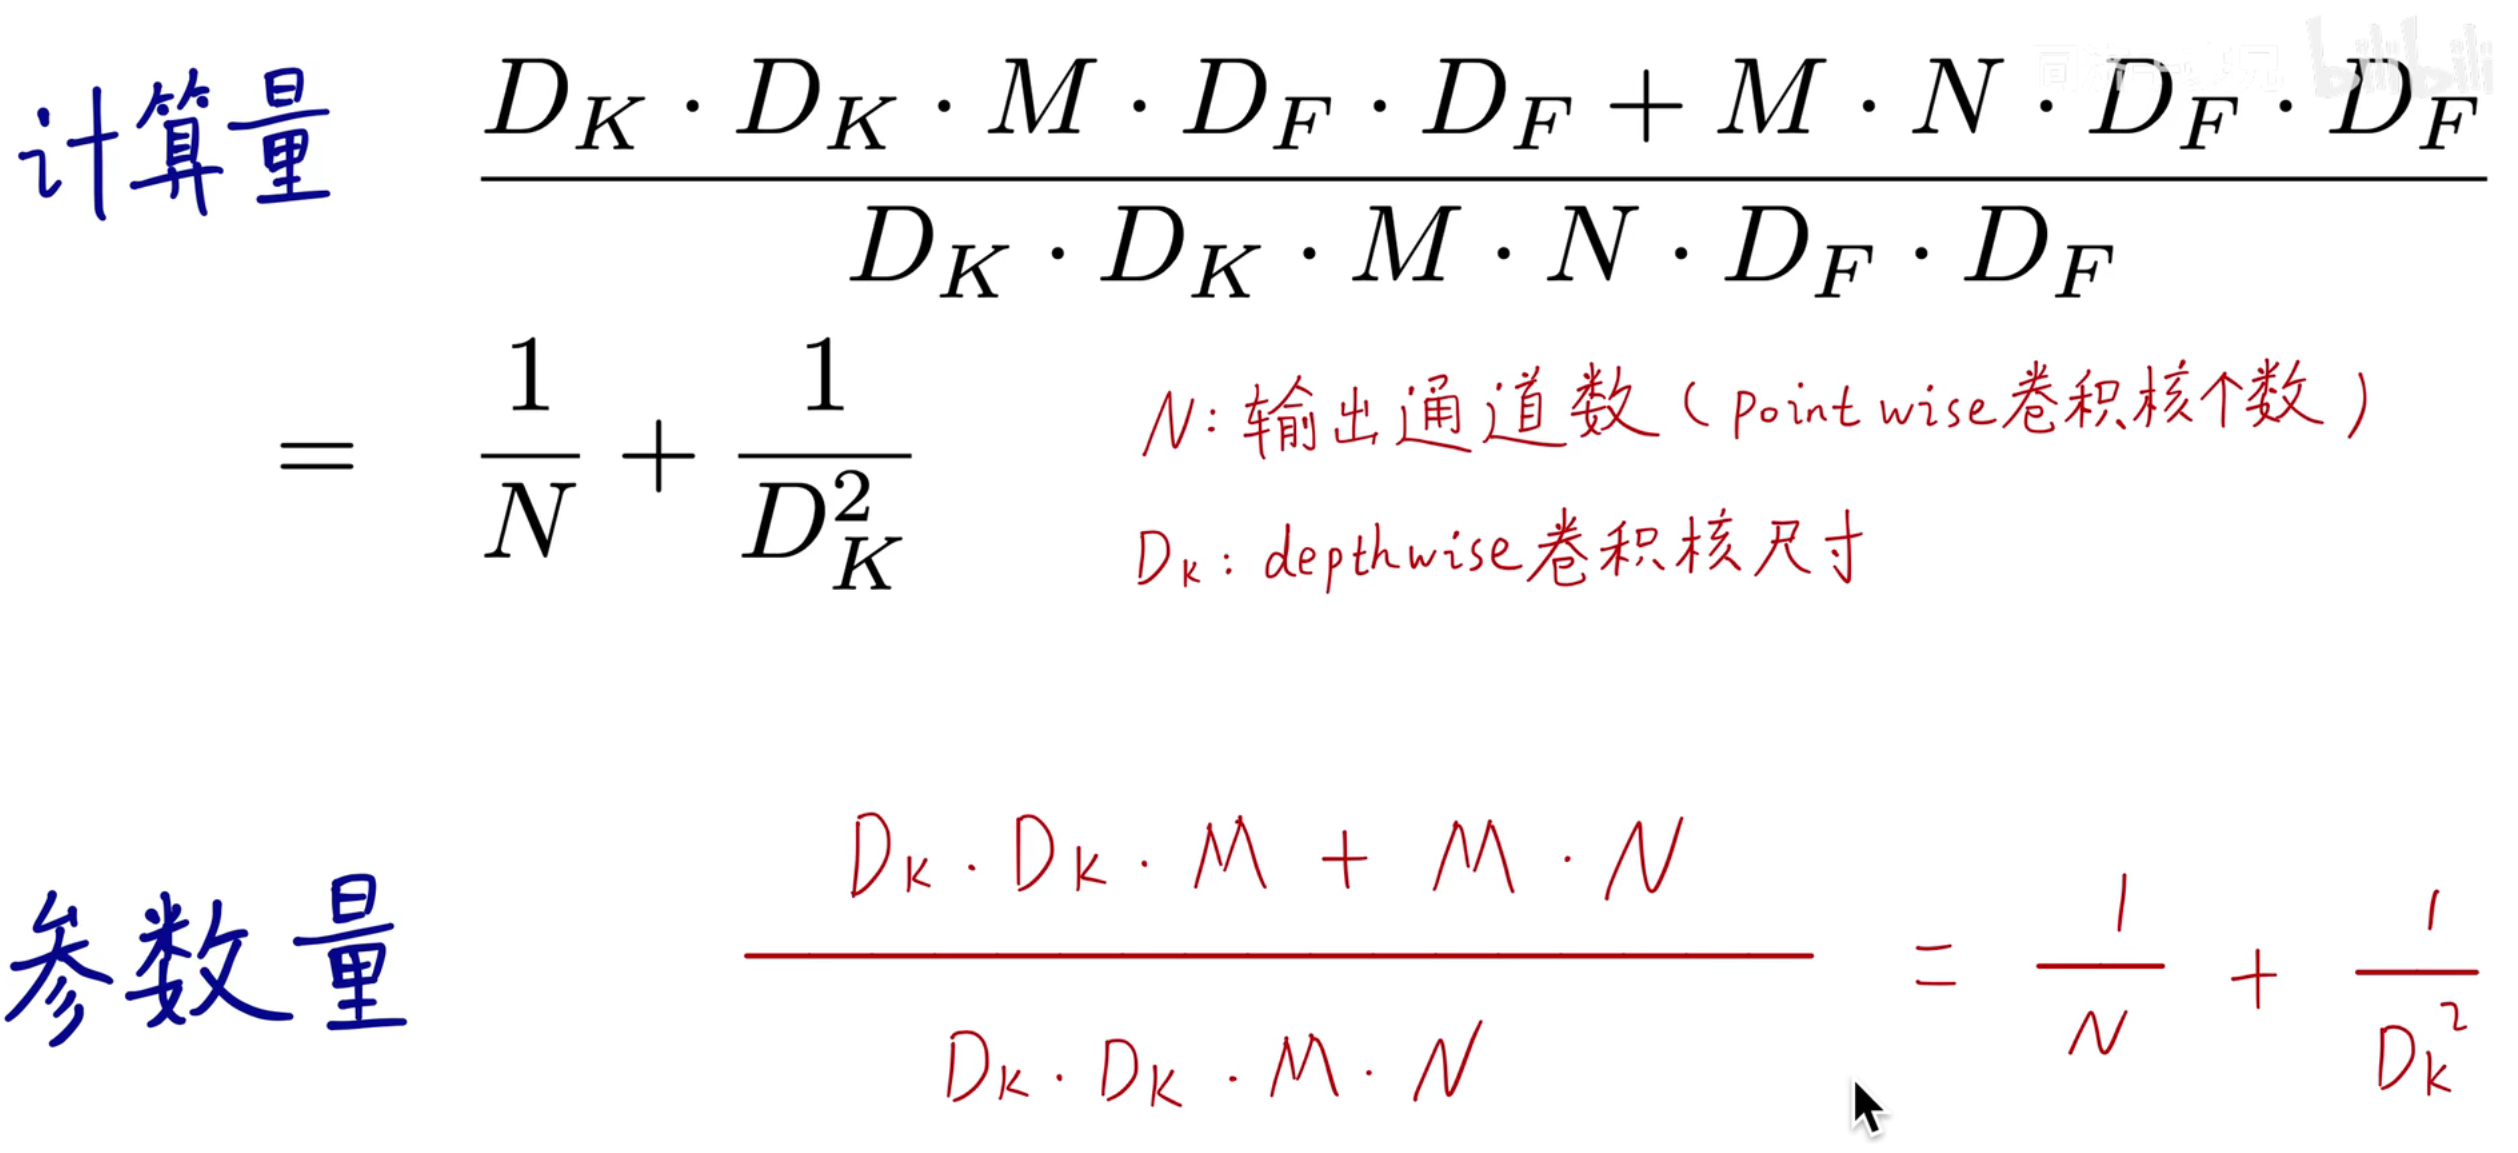 计算量 \frac{D_K \cdot D_K \cdot M \cdot D_F \cdot D_F + M \cdot N \cdot D_F \cdot D_F}{D_K \cdot D_K \cdot M \cdot N \cdot D_F \cdot D_F}
= \frac{1}{N} + \frac{1}{D_K^2}
N: 输出通道数 (pointwise卷积核个数)
D_K: depthwise卷积核尺寸
参数量 \frac{D_K \cdot D_K \cdot M + M \cdot N}{D_K \cdot D_K \cdot M \cdot N} = \frac{1}{N} + \frac{1}{D_K^2}
bilibili